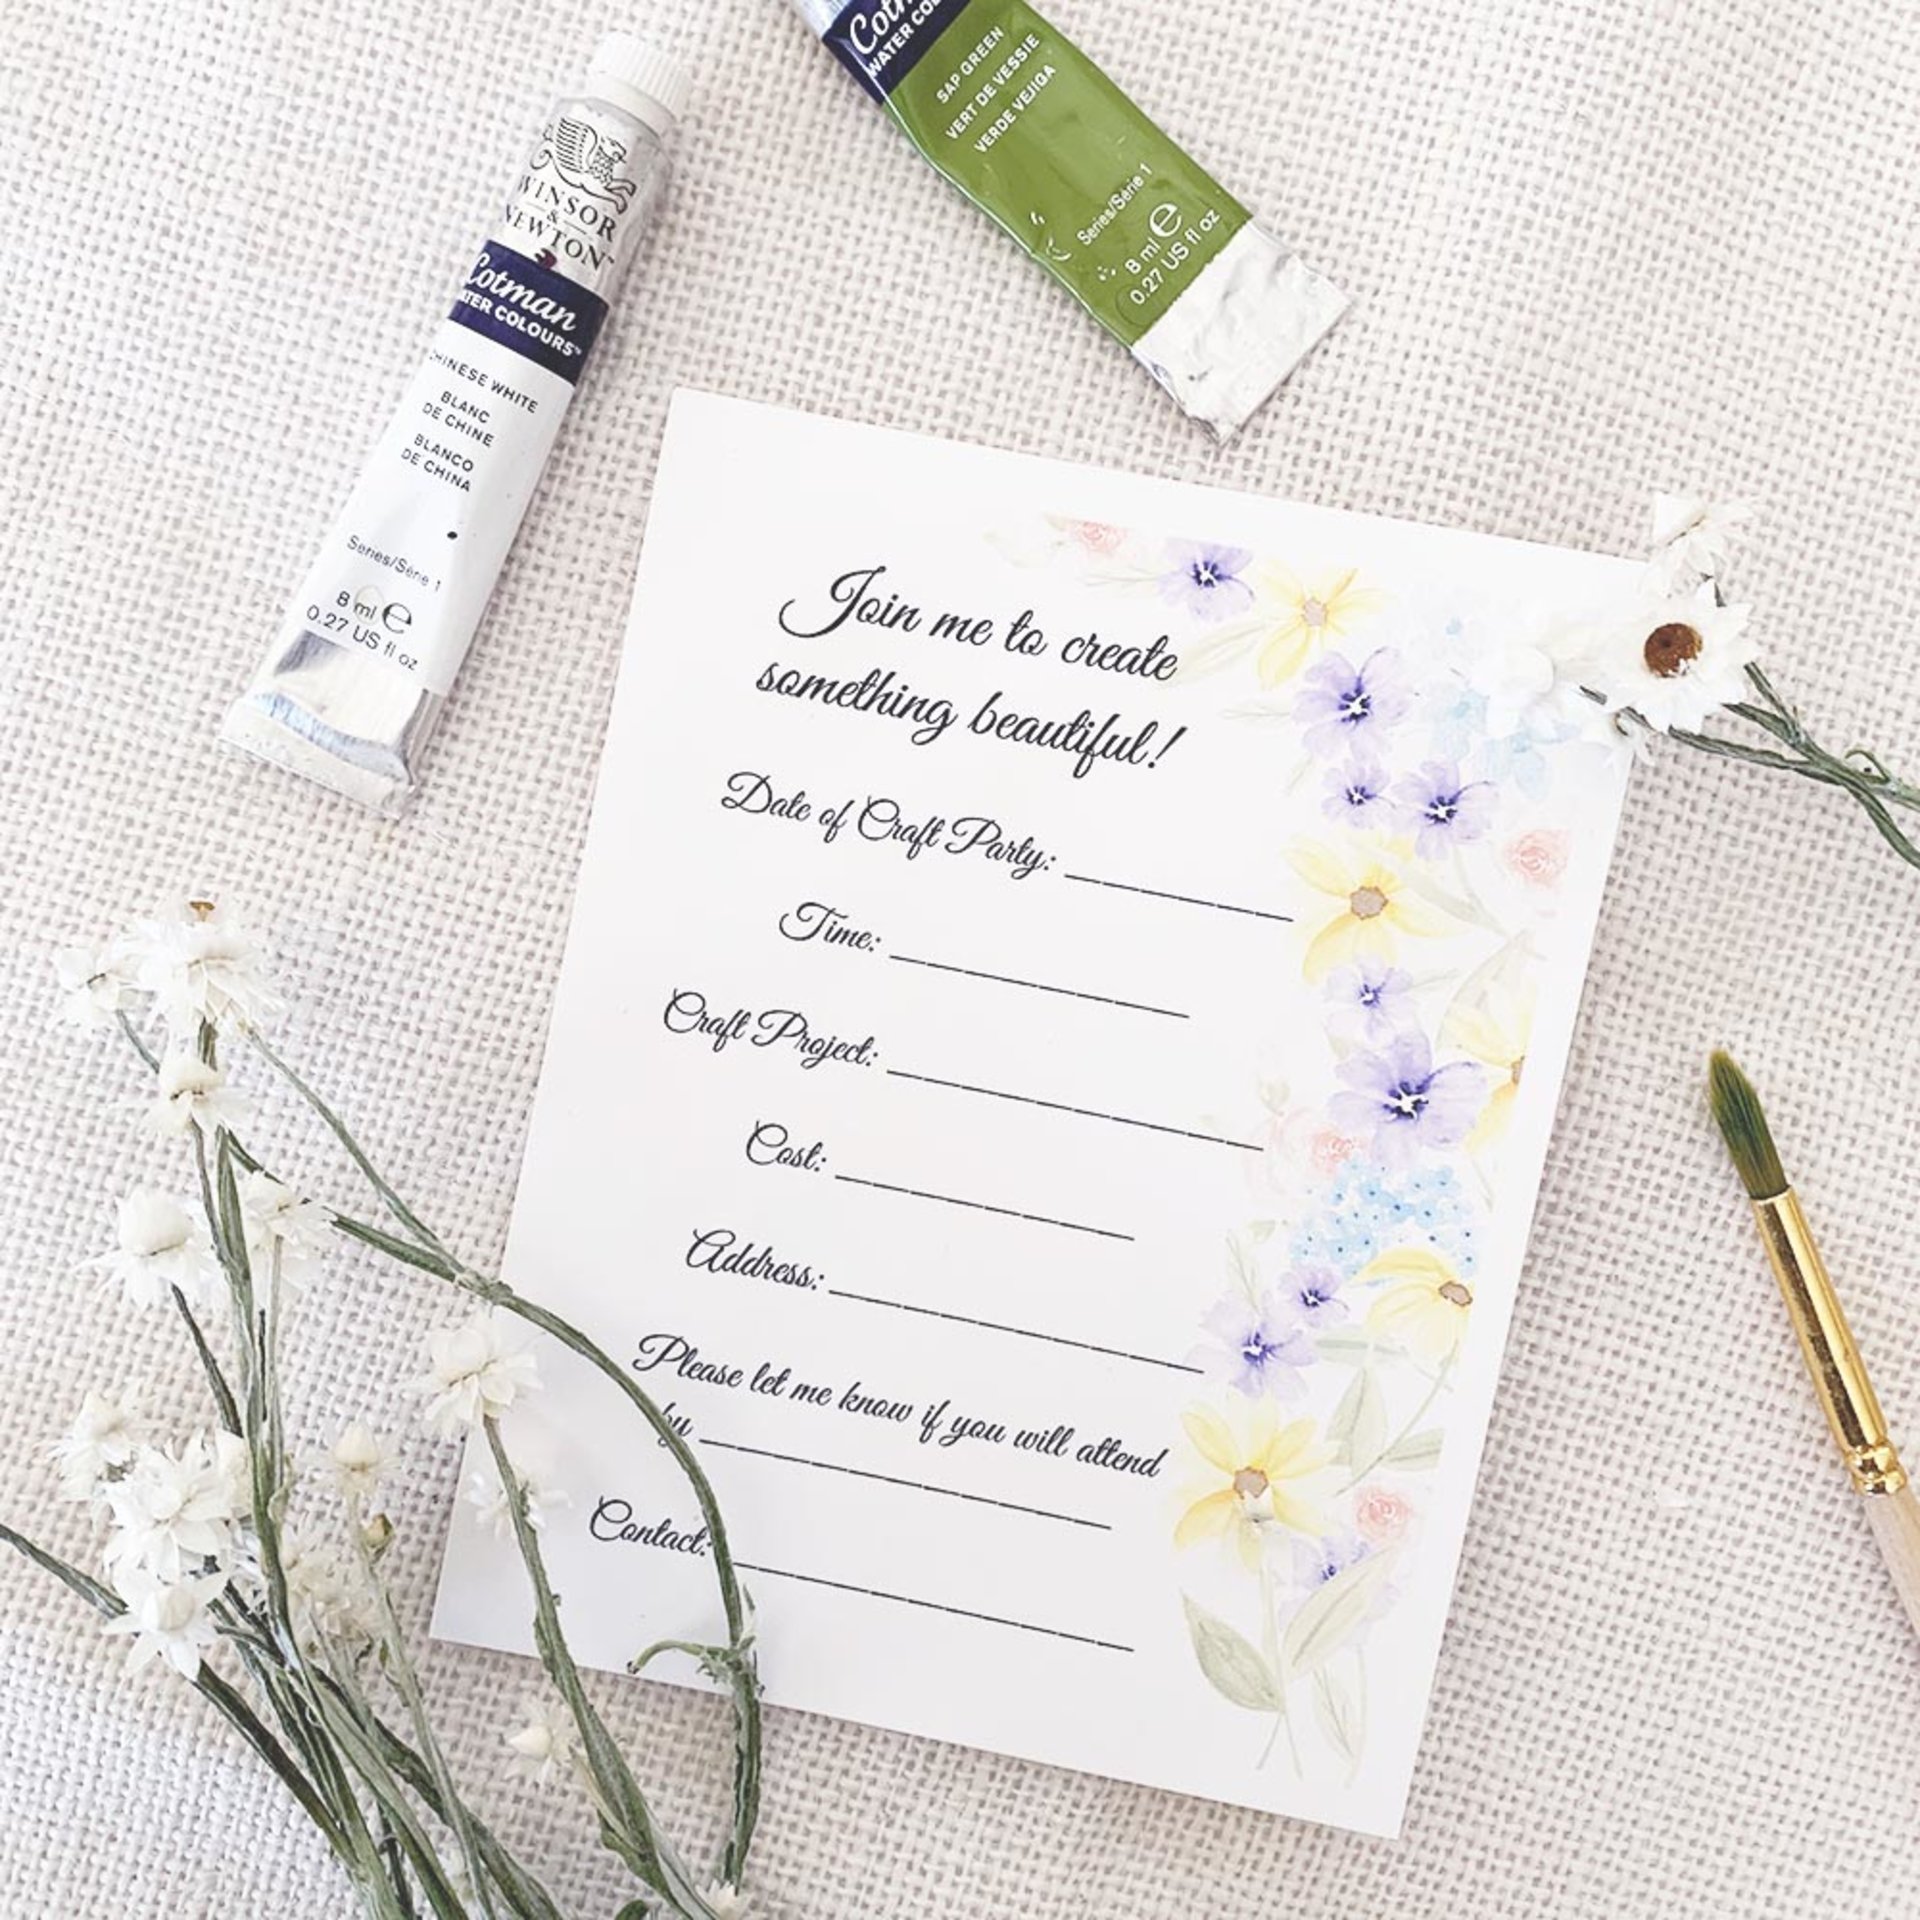 Cotm
WATER CO
SAP GREEN
VERT DE VESSIE
VERDE VEJIGA
Series/Série 1
8 ml e
0.27 US fl oz
WINSOR
&
NEWTON™
Cotman
WATER COLOURS™
CHINESE WHITE
BLANC
DE CHINE
BLANCO
DE CHINA
Series/Série 1
8 ml e
0.27 US fl oz
Join me to create
something beautiful!
Date of Craft Party: ____________
Time: ________________
Craft Project: ____________________
Cost: ________________
Address: ____________________
Please let me know if you will attend
by ______________________
Contact: ______________________